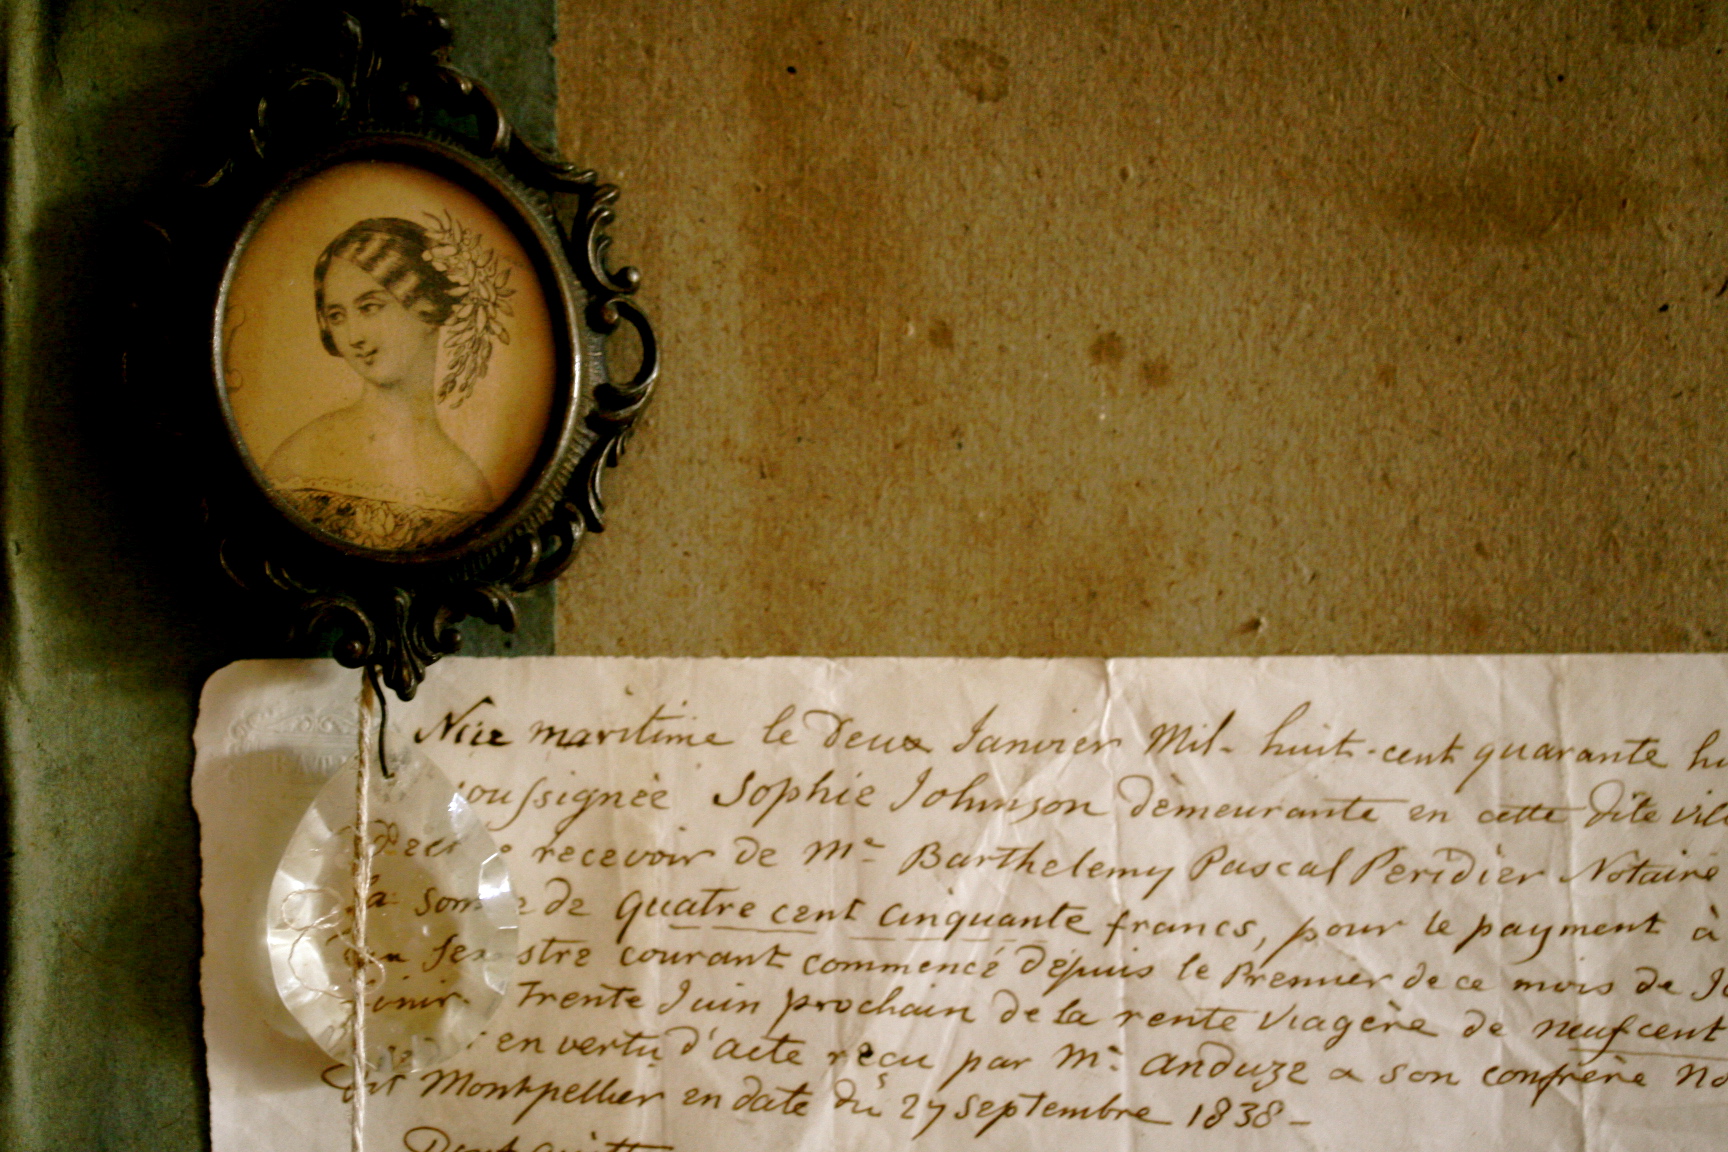 Nice maritime le Deux Janvier Mil-huit-cent quarante
soussignée Sophie Johnson demeurante en cette dite
recevoir de Me Barthelemy Pascal Peridier Notaire
la somme de quatre cent cinquante francs, pour le payment à
courant commencé depuis le Premier de ce mois de
finir Trente Juin prochain de la rente viagère de neuf cent
en vertu d'acte reçu par Me Anduze a son confrère
Montpellier en date du 27 septembre 1838 -